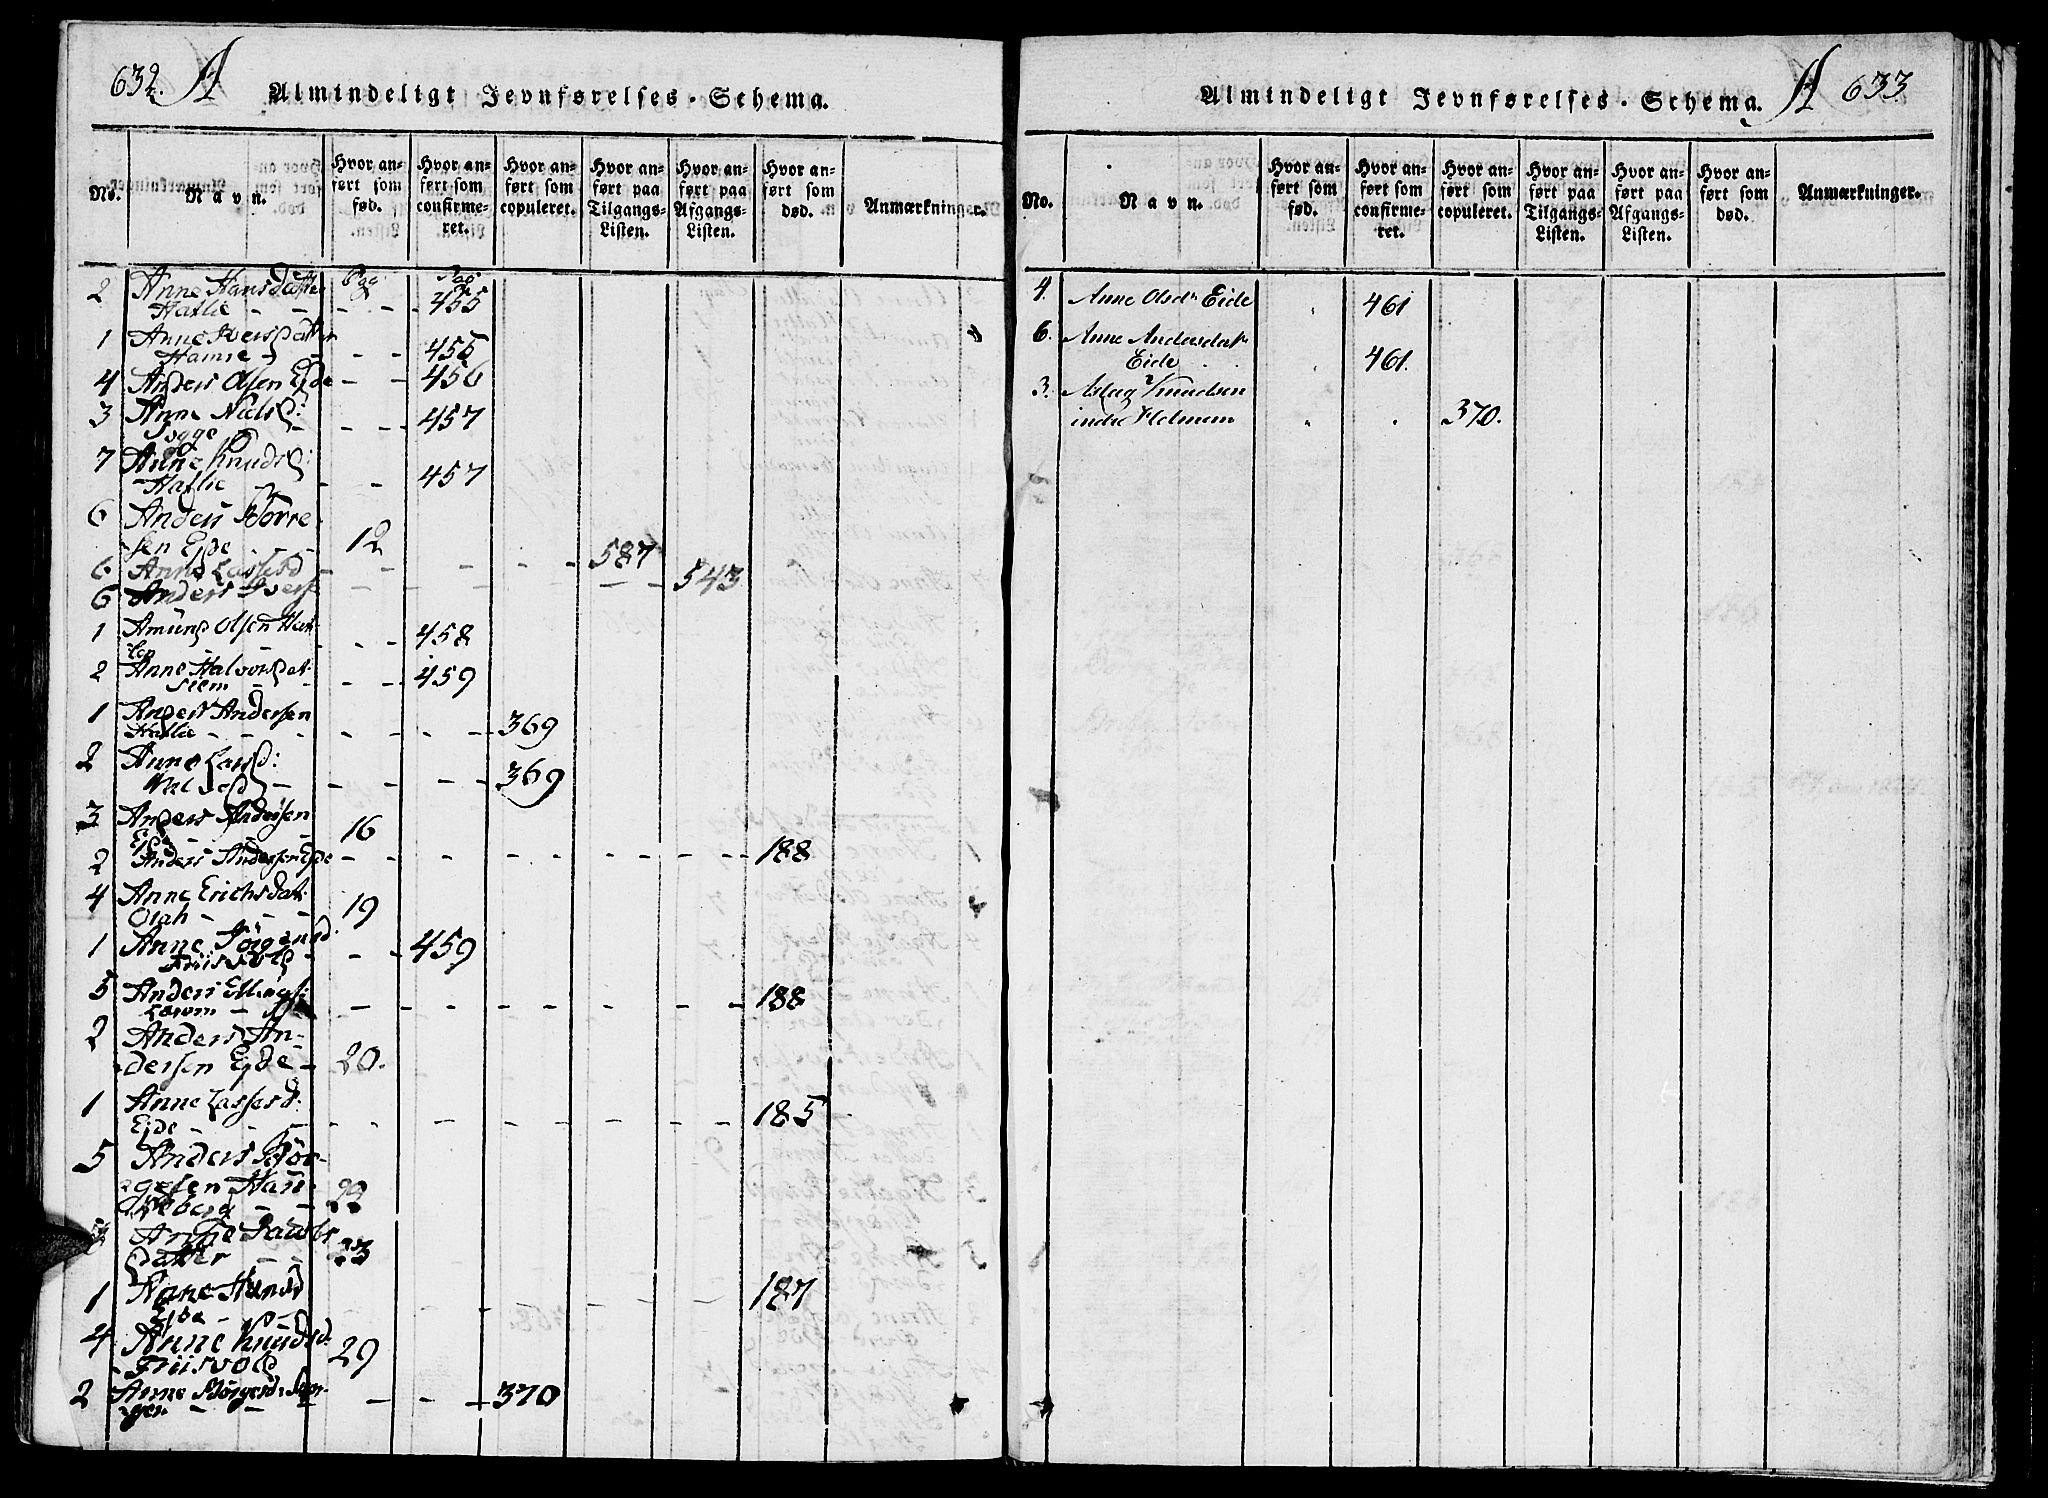 632. A
Almindeligt Jevnførelses-Schema.
No.
Navn.
Hvor anført som fød.
Hvor anført som confirmeret.
Hvor anført som copuleret.
Hvor anført paa Tilgangs-Listen.
Hvor anført paa Afgangs-Listen.
Hvor anført som død.
Anmærkninger.
Pag Pag
2 Anne Hansdatter
Hatlie - - - - 455
1 Anne Iversdatter
Hamre - - - 455
4 Anders Olsen Ejde - - 456
3 Anne Nielsd:
- - - 457
7 Anne Knudsd:
Hatlie - - - 457
6 Anders Børre-
sen Ejde - - 12
6 Anne Lassesd - - - - 587
6 Anders Iversen - - - - 543
1 Amund Olsen
- - - 458
2 Anne Halvorsdat:
- - - 459
1 Anders Andersen
Hatlie - - - - 369
2 Anne Larsd:
- - - - 369
3 Anders Andersen
Ejde - 16
2 Anders Andersen Ejde - - - - - - 188
4 Anne Erichsdat:
- - - 19
1 Anne Jörgensd:
Friisvold - - 459
5 Anders
- - - - - - 188
2 Anders An-
dersen Ejde - 20.
1 Anne Lassesd:
Ejde - - - - - - - 185
5 Anders Bör-
gesen Hau-
- - 22
Anne
datter - - 23
1 Anne Hansd
Ejde - - - - - 187
4 Anne Knudsd.
Friisvold 29
2 Anne
- - - - 370
Almindeligt Jevnførelses-Schema. A 633
No.
Navn.
Hvor anført som fød.
Hvor anført som confirmeret.
Hvor anført som copuleret.
Hvor anført paa Tilgangs-Listen.
Hvor anført paa Afgangs-Listen.
Hvor anført som død.
Anmærkninger.
4. Anne Olsdr Eide 461
6. Anne Andersdatr
Eide 461.
3. Aslag Knudsen
indre Holmem 370.